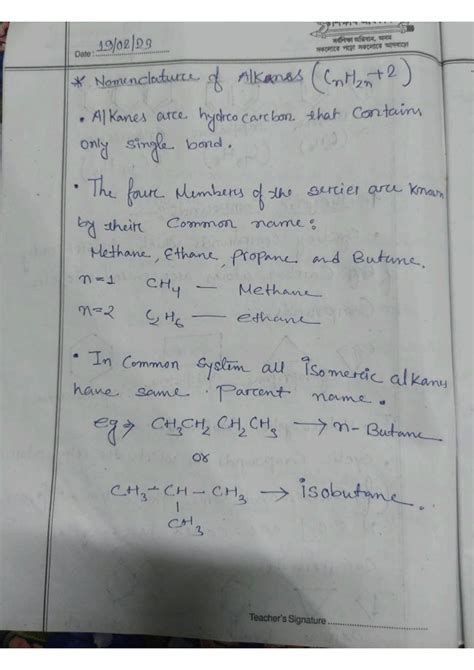 সর্বশিক্ষা অভিযান, অসম
Date : 19/02/23
* Nomenclature of Alkanes (CnH2n+2)
• Alkanes are hydrocarbon that contains
only single bond.
• The four Members of the series are known
by their Common name:
Methane, Ethane, propane and Butane.
n=1 CH4 — Methane
n=2 C2H6 — ethane
• In Common System all isomeric alkanes
have same Parent name.
eg → CH3CH2CH2CH3 → n-Butane
or
CH3-CH-CH3 → isobutane.
CH3
Teacher's Signature